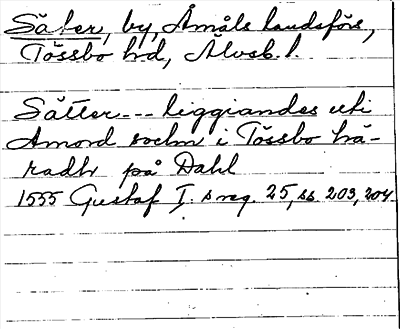 Säter, by, Åmåls landsförs,
Tössbo hd, Älvsb. l.
Sätter --- liggiandes uti
Amord sochn i Tössbo hä-
radh på Dahl
1555 Gustaf I:s reg. 25, ss. 203, 204.